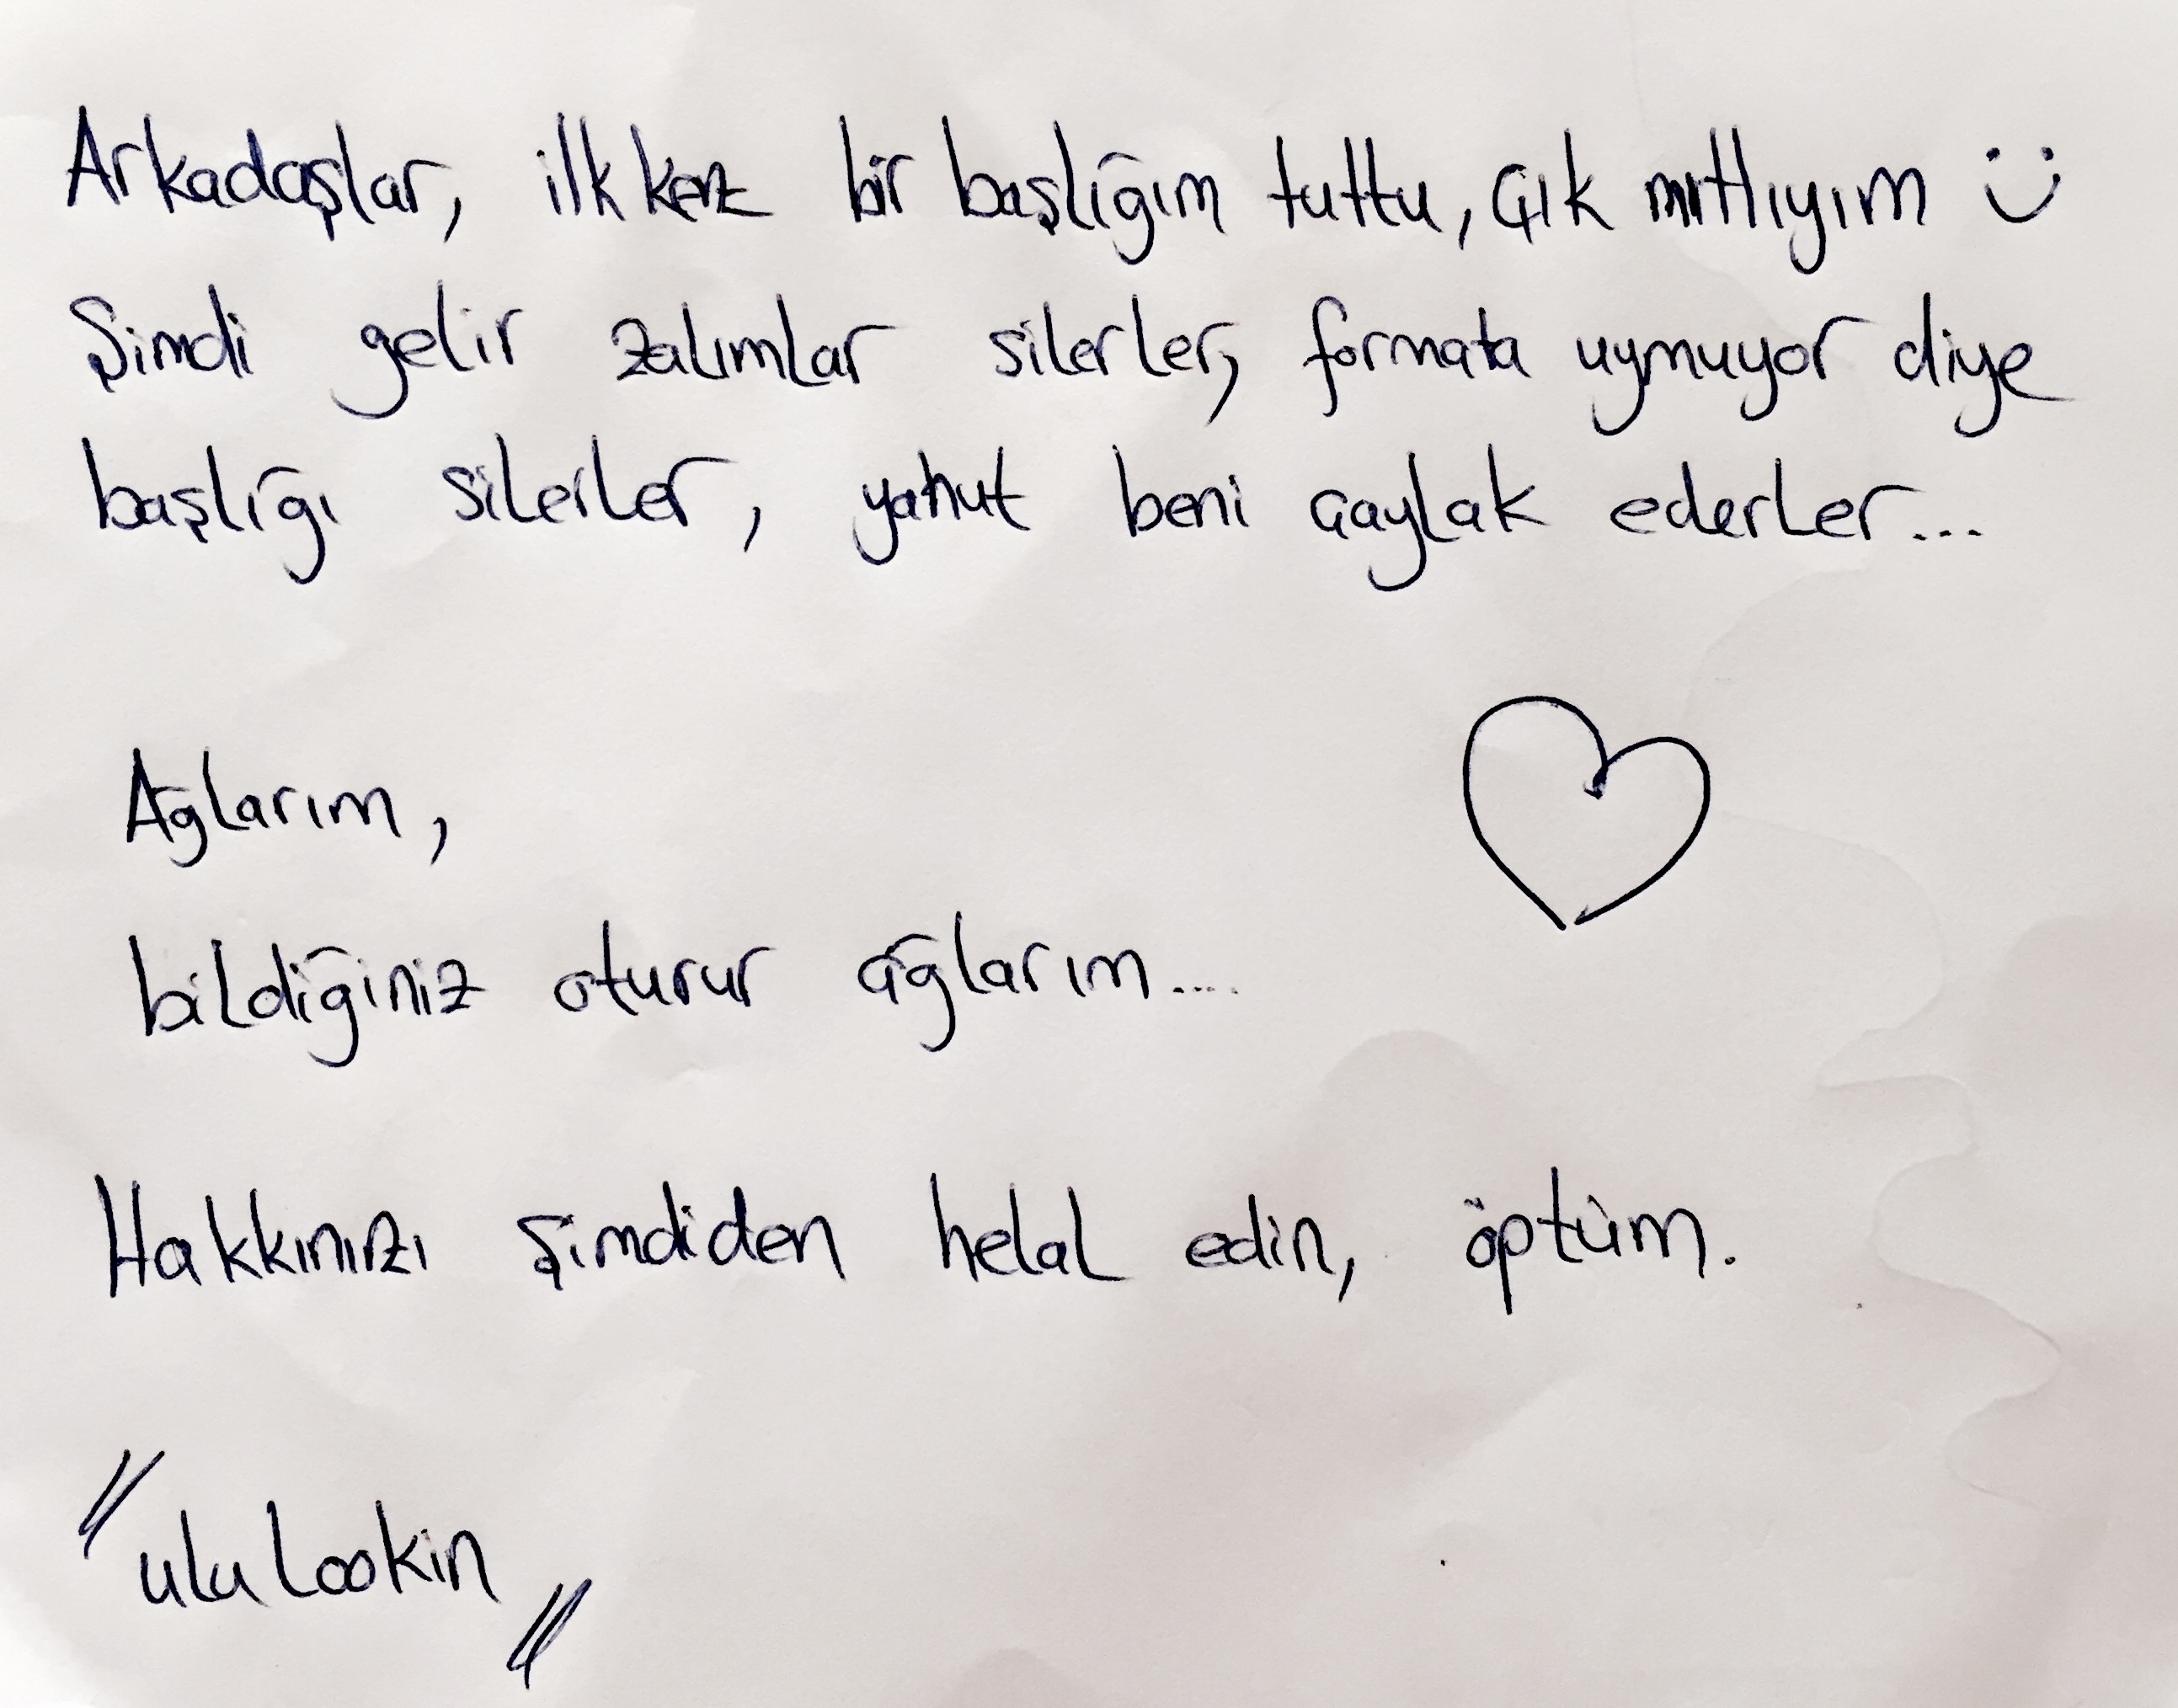 Arkadaşlar, ilk kez bir başlığım tuttu, çık mıtlıyım :)
Şimdi gelir zalımlar silerler, formata uymuyor diye
başlığı silerler, yahut beni çaylak ederler...
Ağlarım,
bildiğiniz oturur ağlarım....
Hakkınızı şimdiden helal edin, öptüm.
"ulu Lookin"